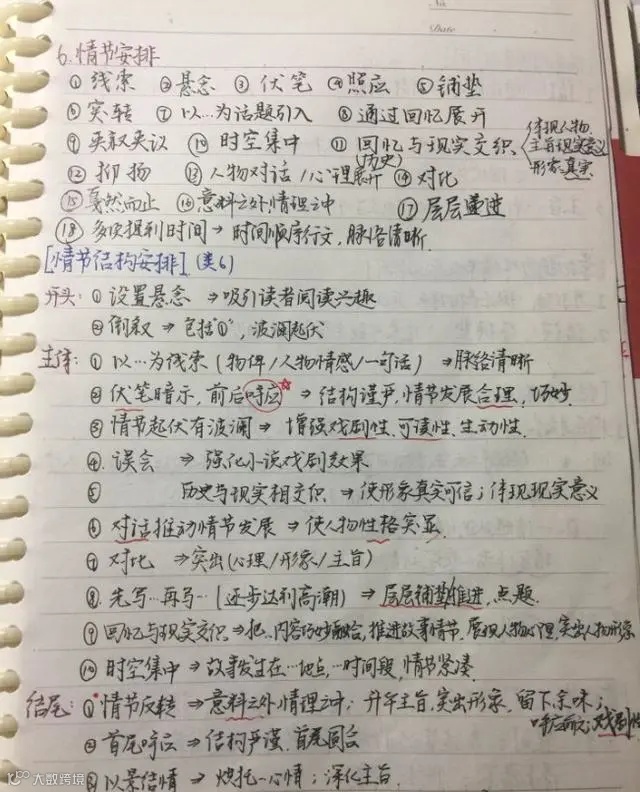 No.
Date
6.情节安排
①线索 ②悬念 ③伏笔 ④照应 ⑤铺垫
⑥突转 ⑦以…为话题引入 ⑧通过回忆展开
⑨夹叙夹议 ⑩时空集中 ⑪回忆与现实交织 体现人物
(历史) 主旨现实意义
形象真实
⑫抑扬 ⑬人物对话/心理展开 ⑭对比
⑮戛然而止 ⑯意料之外,情理之中 ⑰层层递进
⑱多次提到时间→时间顺序行文,脉络清晰.
[情节结构安排](类6)
开头:①设置悬念⇒吸引读者阅读兴趣
②倒叙→包括"①",波澜起伏
主体:①以…为线索(物件/人物情感/一句话)⇒脉络清晰
②伏笔暗示,前后呼应☆⇒结构谨严,情节发展合理,巧妙.
③情节起伏有波澜⇒增强戏剧性、可读性、生动性.
④误会⇒强化小说戏剧效果
⑤ 历史与现实相交织⇒使形象真实可信;体现现实意义
⑥对话推动情节发展⇒使人物性格突显.
⑦对比⇒突出(心理/形象/主旨)
⑧先写…再写…(逐步达到高潮)⇒层层铺垫推进,点题.
⑨回忆与现实交织⇒把…内容巧妙融合,推进故事情节,展现人物心理,突出人物形象
⑩时空集中→故事发生在…地点,…时间段,情节紧凑.
结尾:①情节反转→意料之外,情理之中;升华主旨,突出形象,留下余味;
呼应前文;戏剧性
②首尾呼应→结构严谨,首尾圆合
③以景结情→烘托…心情;深化主旨.
大数跨境